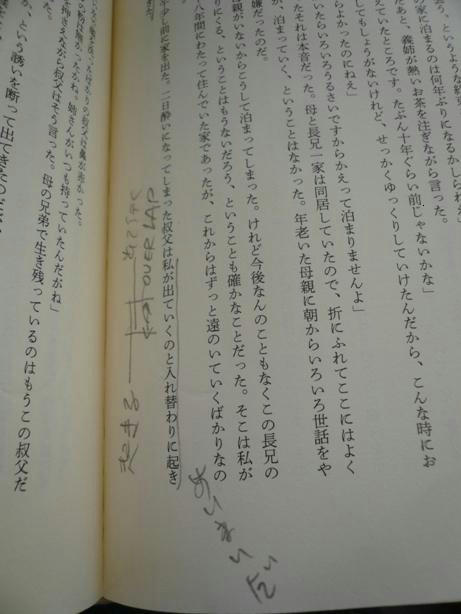 う、というような約束
たあと、義姉が熱いお茶を注ぎながら言った。
の家に泊まるのは何年ぶりになるかしらね」
えていたところです。たぶん十年ぐらい前じゃないかな」
してもしょうがないけれど、せっかくゆっくりしていけたんだから、こんな時にお
らよかったのにねえ」
いたらいろいろうるさいですからかえって泊まりませんよ」
たそれは本音だった。母と長兄一家は同居していたので、折にふれてここにはよく
が、泊まっていく、ということはなかった。年老いた母親に朝からいろいろ世話をや
嫌だったのだ。
親がいないからこうして泊まってしまった。けれど今後なんのこともなくこの長兄の
りにくる、ということはもうないだろう、ということも確かなことだった。そこは私が
八年間にわたって住んでいた家であったが、これからはずっと遠のいていくばかりなの
少し前に家を出た。二日酔いになってしまった叔父は私が出ていくのと入れ替わりに起き
あいまい
OVER LAP
叔父は鼻が赤かった。
かね。姉さんがいつも持っていたんだがね」
えながら叔父はそう言った。母の兄弟で生き残っているのはもうこの叔父だ
、という誘いを断って出てきたのだが、